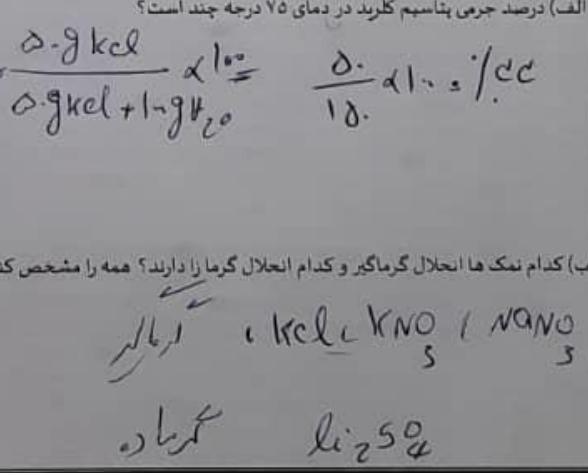 الف) درصد جرمی پتاسیم کلرید در دمای ۷۵ درجه چند است؟
۵۰g kcl / ۵۰g kcl + ۱۰۰g H₂O × ۱۰۰ = ۵۰ / ۱۵۰ × ۱۰۰ = ٪۳۳
ب) کدام نمک ها انحلال گرماگیر و کدام انحلال گرما زا دارند؟ همه را مشخص کن
گرماگیر ، kcl ، KNO₃ ، NaNO₃
گرماده Li₂SO₄